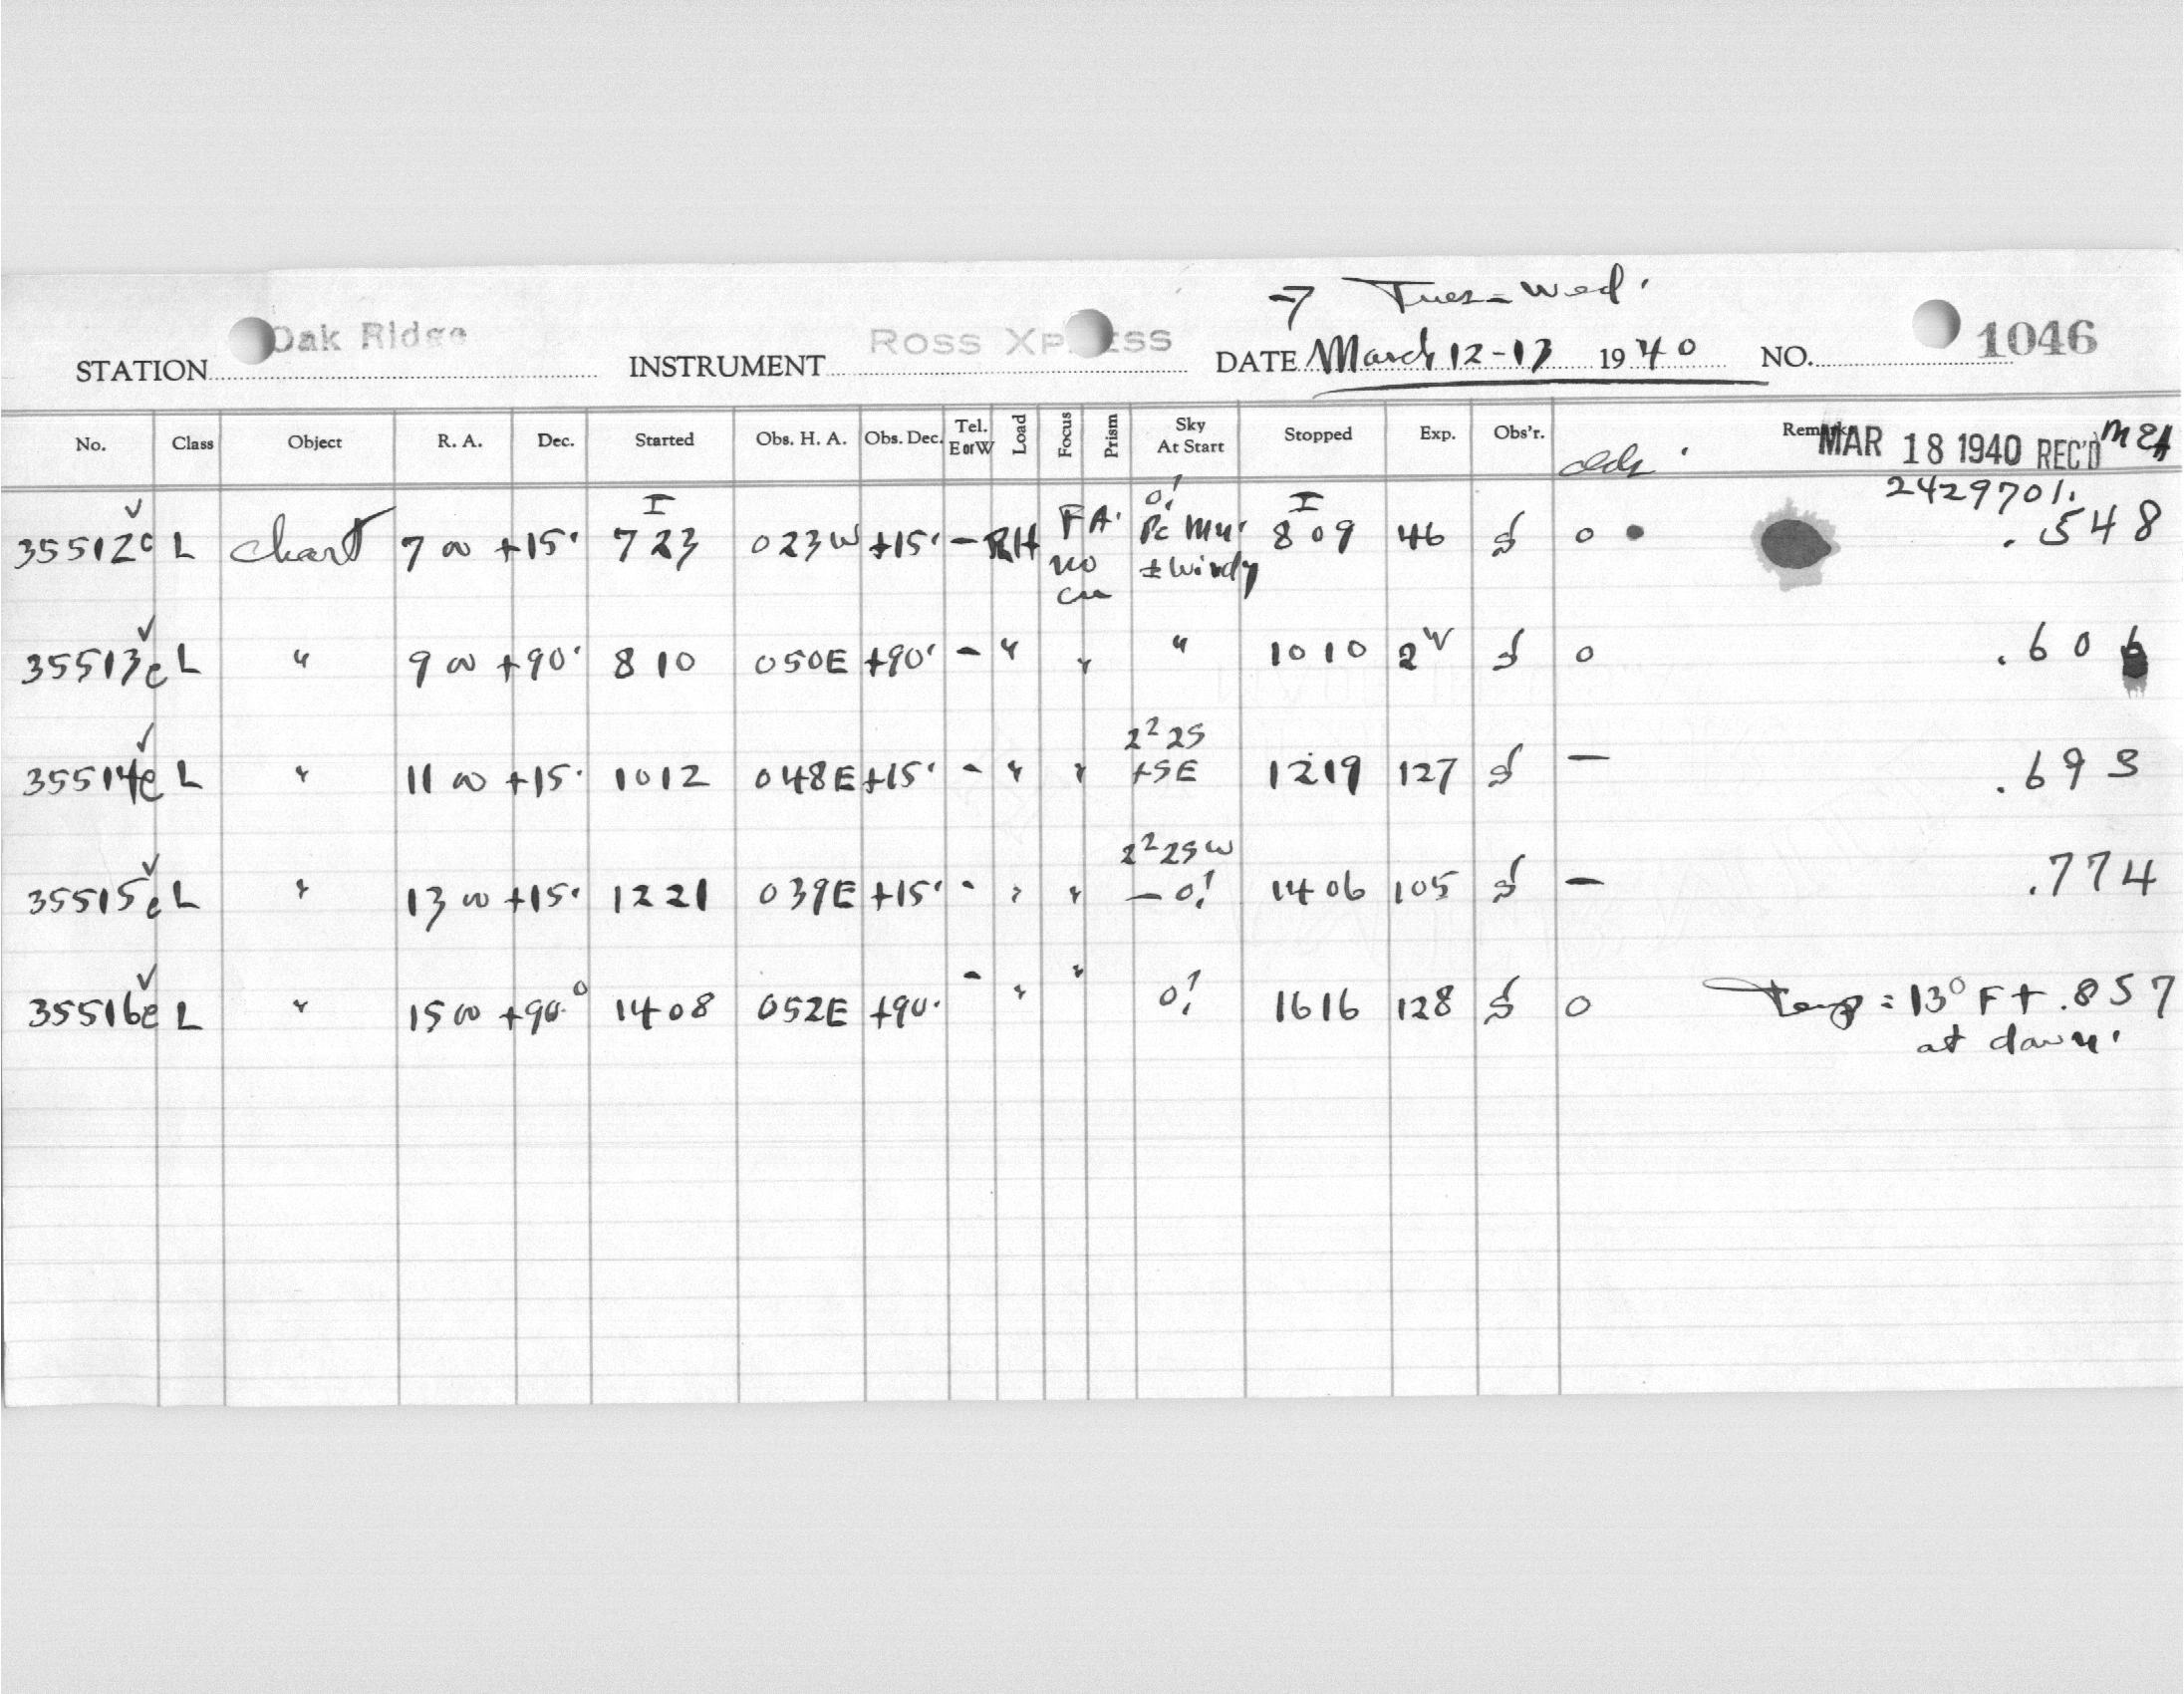 → Tues - Wed.
STATION Oak Ridge INSTRUMENT ROSS XP ESS DATE March 12-13 1940 NO. 1046
No. Class Object R. A. Dec. Started Obs. H. A. Obs. Dec. Tel. E or W Load Focus Prism Sky At Start Stopped Exp. Obs'r. Remarks MAR 18 1940 REC'D MEA
2429701.
35512c L Chart 7 00 +15° I 7 23 0 23 W +15° - RH FA. no 0! ± Windy I 8 09 46 0 • .548
35513e L " 9 00 +90° 8 10 0 50 E +90° - " " " 10 10 0 .606
35514e L " 11 00 +15° 10 12 0 48 E +15° - " " 2² 2S +SE 12 19 127 — .693
35515e L " 13 00 +15° 12 21 0 39 E +15° - " " 2² 2SW — 0! 14 06 105 — .774
35516e L " 15 00 +90° 14 08 0 52 E +90° - " " 0! 16 16 128 0 Temp = 13° F + .857
at dawn.